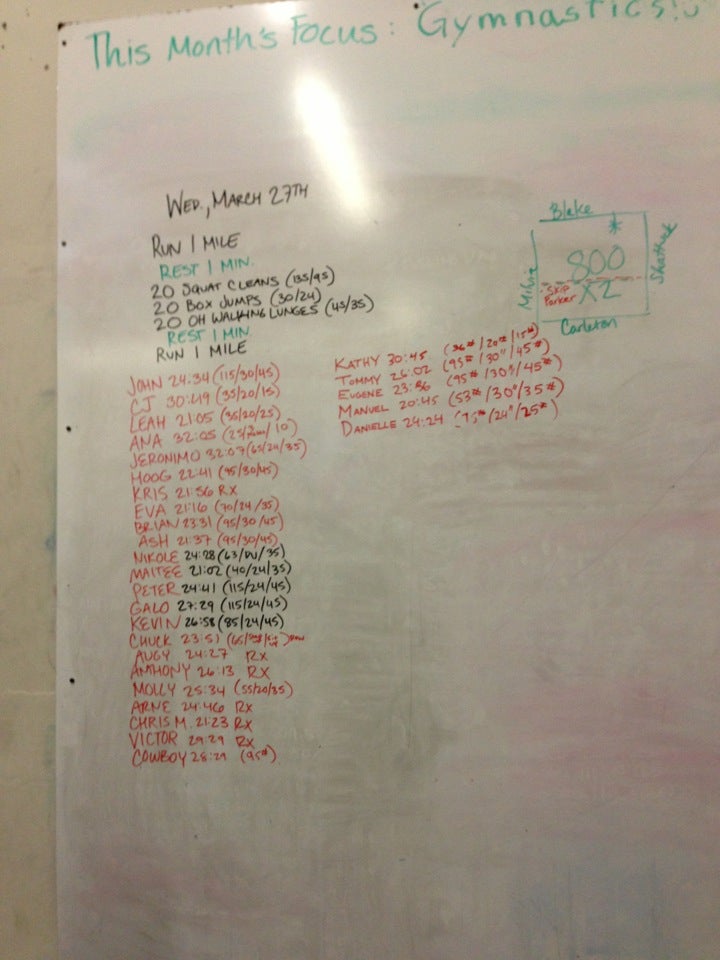 This Month's Focus: Gymnastics!
WED., MARCH 27TH
RUN 1 MILE
REST 1 MIN.
20 SQUAT CLEANS (135/95)
20 BOX JUMPS (30/24)
20 OH WALKING LUNGES (45/35)
REST 1 MIN
RUN 1 MILE
JOHN 24:34 (115/30/45)
CJ 30:49 (35/20/15)
LEAH 21:05 (35/20/25)
ANA 32:05 (25/ /10)
JERONIMO 32:07 (65/24/35)
HOOG 22:41 (95/30/45)
KRIS 21:56 RX
EVA 21:16 (70/24/35)
BRIAN 23:31 (95/30/45)
ASH 21:37 (95/30/45)
NIKOLE 24:28 (63/DU/35)
MAITEE 21:02 (40/24/35)
PETER 24:41 (115/24/45)
GALO 27:29 (115/24/45)
KEVIN 26:58 (85/24/45)
CHUCK 23:51 (65/
AUGY 24:27 RX
ANTHONY 26:13 RX
MOLLY 25:34 (55/20/35)
ARNE 24:46 RX
CHRIS M. 21:23 RX
VICTOR 29:29 RX
COWBOY 28:29 (95#)
KATHY 30:45 (36#/20#/15#)
TOMMY 26:02 (95#/30"/45#)
EUGENE 23:36 (95#/30"/45#)
MANUEL 20:45 (53#/30"/35#)
DANIELLE 24:24 (75#/24"/25#)
Blake
*
800
X2
Milvia
Skip
Parker
Shattuck
Carleton